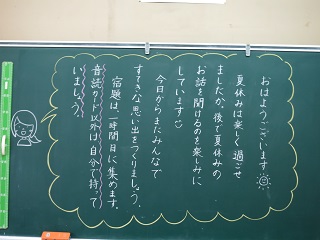 おはようございます
夏休みは楽しく過ごせ
ましたか。後で夏休みの
お話を聞けるのを楽しみに
しています
今日からまたみんなで
すてきな思い出をつくりましょう。
宿題は、一時間目に集めます。
音読カード以外は自分で持って
いましょう